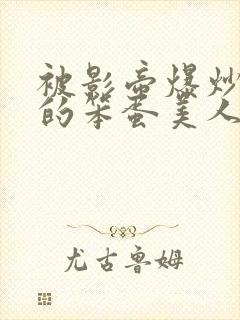 被影帝爆炒
的笨蛋美人
尤古鲁姆